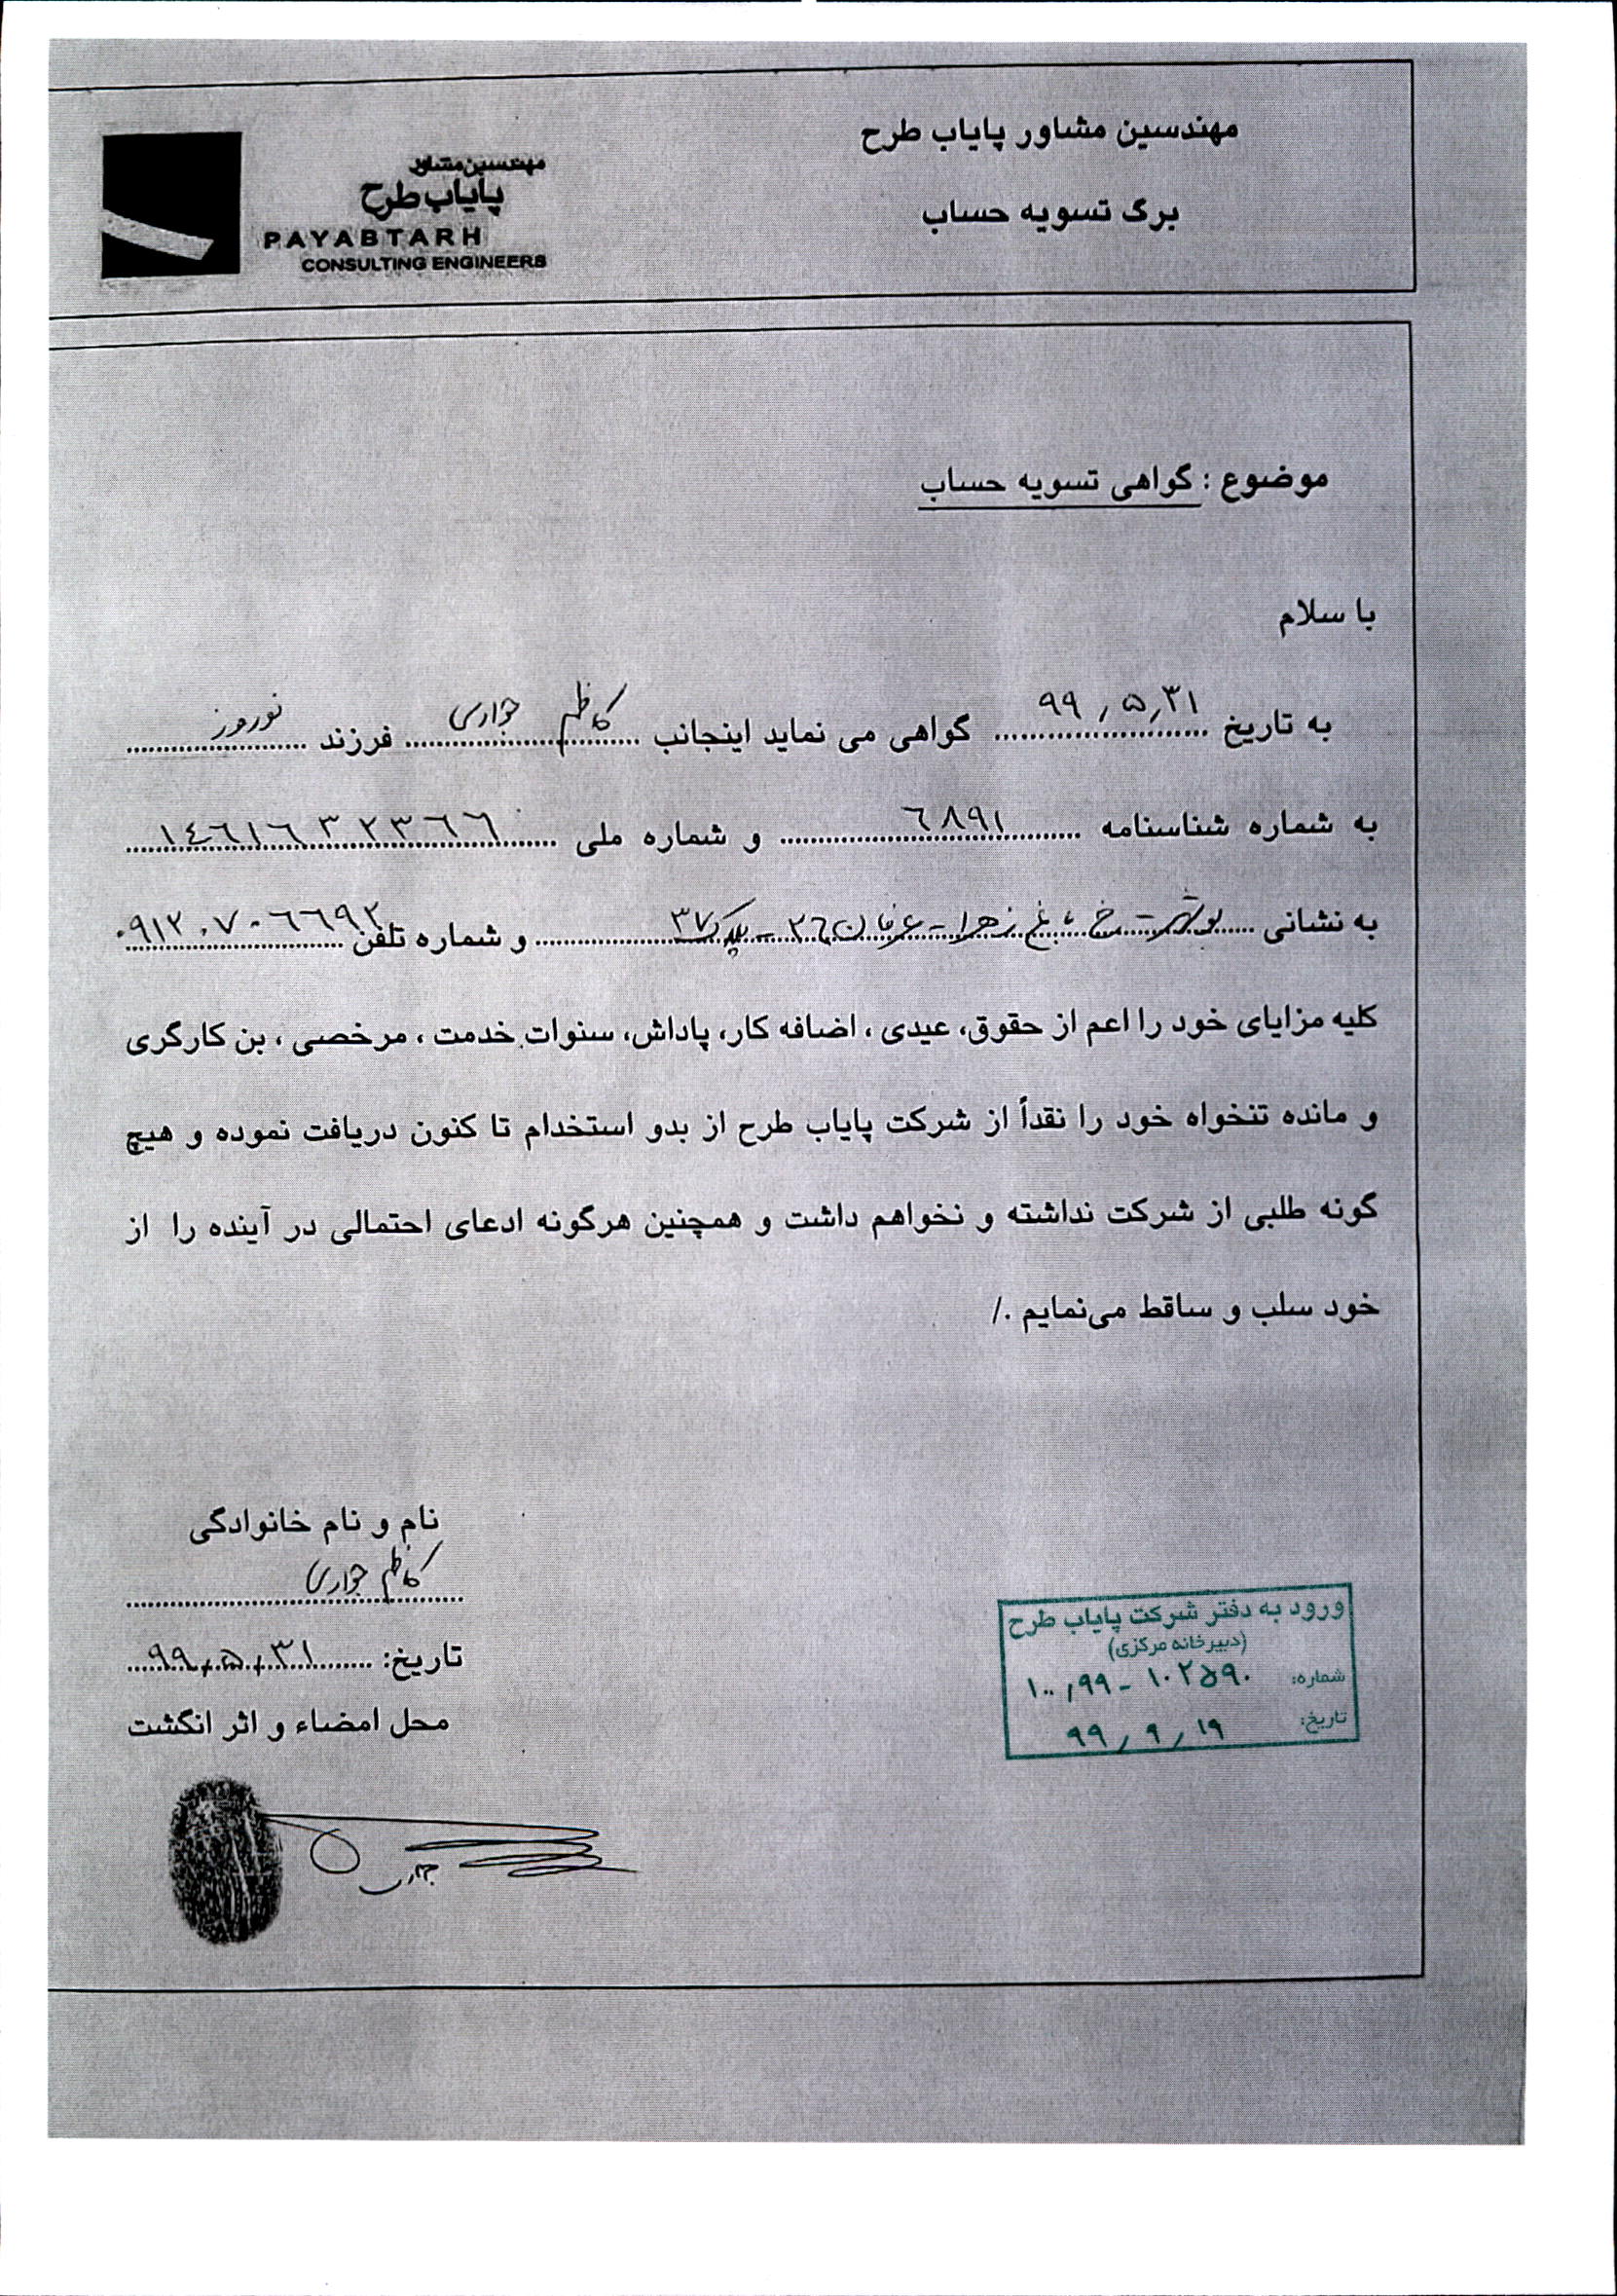 مهندسین مشاور پایاب طرح
برگ تسویه حساب
مهندسین مشاور
پایاب طرح
PAYABTARH
CONSULTING ENGINEERS
موضوع : گواهی تسویه حساب
با سلام
به تاریخ ۹۹٫۵٫۳۱ گواهی می نماید اینجانب کاظم جواری فرزند نوروز
به شماره شناسنامه ۶۸۹۱ و شماره ملی
به نشانی بوشهر - خ باغ زهرا - عرفان ۲۶ - پلاک ۳۷ و شماره تلفن ۰۹۱۲۰۷۰۶۶۹۲
کلیه مزایای خود را اعم از حقوق، عیدی ، اضافه کار، پاداش، سنوات خدمت ، مرخصی ، بن کارگری
و مانده تنخواه خود را نقداً از شرکت پایاب طرح از بدو استخدام تا کنون دریافت نموده و هیچ
گونه طلبی از شرکت نداشته و نخواهم داشت و همچنین هرگونه ادعای احتمالی در آینده را از
خود سلب و ساقط می‌نمایم ./
نام و نام خانوادگی
کاظم جواری
تاریخ: ۹۹٫۵٫۳۱
محل امضاء و اثر انگشت
ورود به دفتر شرکت پایاب طرح
(دبیرخانه مرکزی)
شماره: ۱۰۰٫۹۹ - ۱۰۲۵۹۰
تاریخ: ۹۹٫۹٫۱۹